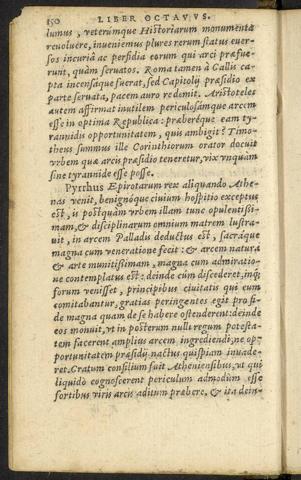 150 LIBER OCTAVVS.
lumus, veterúmque Historiarum monumenta
reuoluere, inueniemus plures rerum status euer-
sos incuriâ ac perfidia eorum qui arci præfue-
runt, quàm seruatos. Roma tamen à Gallis ca-
pta incensáque fuerat, sed Capitolij præsidio ex
parte seruata, pacem auro redemit. Aristoteles
autem affirmat inutilem periculosámque arcem
esse in optima Republica: præberéque eam ty-
rannidis opportunitatem, quis ambigit? Timo-
theus summus ille Corinthiorum orator docuit
vrbem quæ arcis præsidio teneretur, vix vnquam
sine tyrannide esse posse.
Pyrrhus Epirotarum rex aliquando Athe-
nas venit, benignóque ciuium hospitio exceptus
est, is postquàm vrbem illam tunc opulentissi-
mam, & disciplinarum omnium matrem lustra-
uit, in arcem Palladis deductus est, sacráque
magna cum veneratione fecit: & arcem natura
& arte munitissimam, magna cum admiratio-
ne contemplatus est: deinde cùm discederet, inq́;
forum venisset, principibus ciuitatis qui eum
comitabantur, gratias peringentes egit pro fi-
de magna quam de se habere ostenderent: deinde
eos monuit, vt in posterum nulli regum potesta-
tem facerent amplius arcem ingrediendi, ne op-
portunitatem præsidij nactus quispiam inuade-
ret. Gratum consilium fuit Atheniensibus, vt qui
liquidò cognoscerent periculum admodùm esse
fortibus viris arcis aditum præbere, & ita dein-